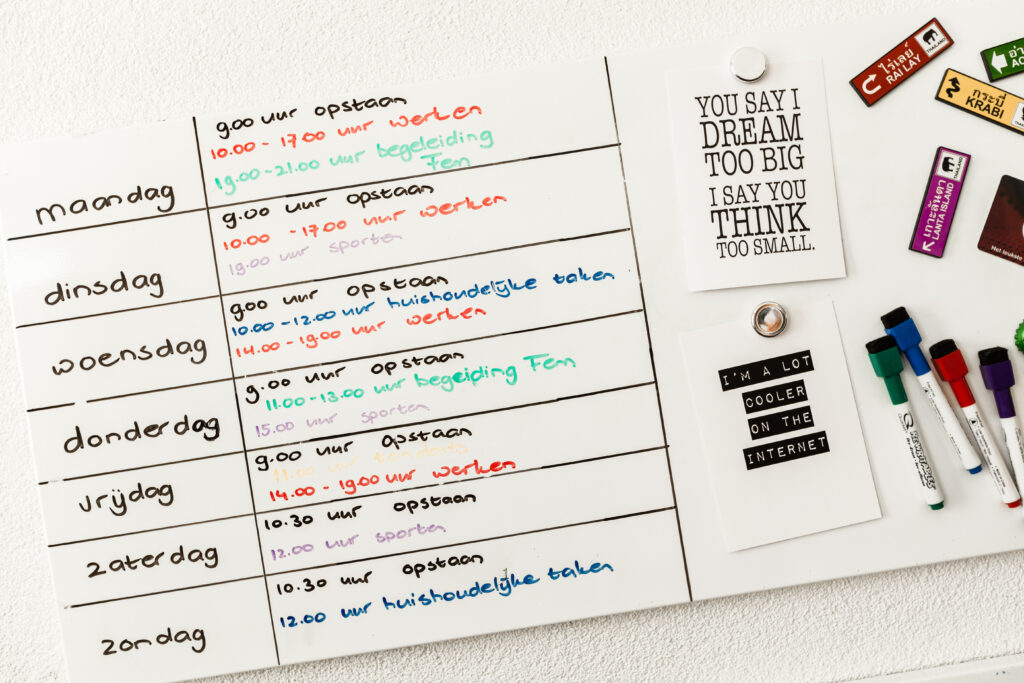 maandag
9.00 uur opstaan
10.00 - 17.00 uur werken
19.00-21.00 uur begeleiding
Fem
dinsdag
9.00 uur opstaan
10.00 - 17.00 uur werken
19.00 uur sporten
woensdag
9.00 uur opstaan
10.00-12.00 uur huishoudelijke taken
14.00-19.00 uur werken
donderdag
9.00 uur opstaan
11.00-13.00 uur begeiding Fem
15.00 uur sporten
vrijdag
9.00 uur opstaan
11.00 uur tandarts
14.00 - 19.00 uur werken
zaterdag
10.30 uur opstaan
12.00 uur sporten
zondag
10.30 uur opstaan
12.00 uur huishoudelijke taken
YOU SAY I
DREAM
TOO BIG
I SAY YOU
THINK
TOO SMALL.
I'M A LOT
COOLER
ON THE
INTERNET
ไร่เลย์
RAI LAY
THAILAND
กระบี่
KRABI
อ่า
AO
เกาะลันตา
LANTA ISLAND
THAILAND
Het leukste